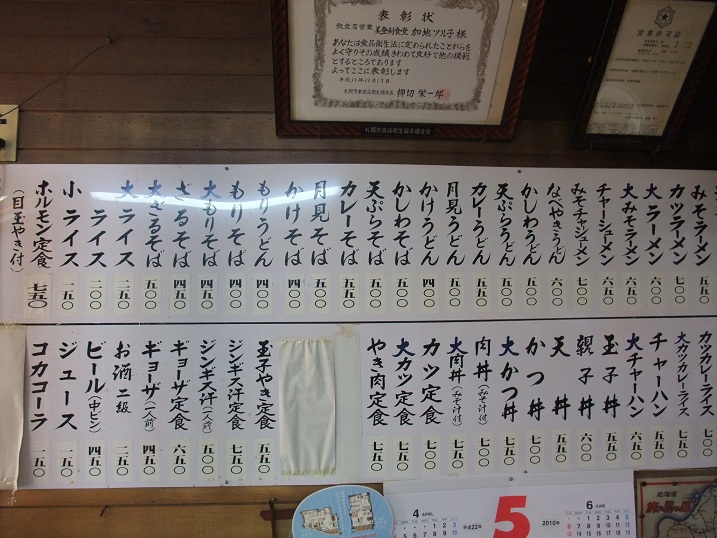 表彰状
飲食店営業 美登利食堂 加地ツル子様
あなたは食品衛生法に定められたことがらを
よく守りその成績きわめて良好で他の模範
とするところであります
よってここに表彰します
平成11年11月17日
札幌市食品衛生協会長 押切栄一郎
札幌市食品衛生協会連合会
営業許可証
みそラーメン 五五〇
カツラーメン 七〇〇
大ラーメン 六〇〇
大みそラーメン 六五〇
チャーシューメン 六五〇
みそチャーシューメン 七〇〇
なべやきうどん 六〇〇
かしわうどん 五〇〇
天ぷらうどん 五五〇
カレーうどん 五五〇
月見うどん 五〇〇
かけうどん 四〇〇
かしわそば 五〇〇
天ぷらそば 五五〇
カレーそば 五五〇
月見そば 五〇〇
かけそば 四〇〇
もりうどん 四〇〇
もりそば 四〇〇
大もりそば 四五〇
ざるそば 四五〇
大ざるそば 五〇〇
大ライス 二五〇
ライス 二〇〇
小ライス 一五〇
ホルモン定食 七五〇
(目玉やき付)
カツカレーライス 七〇〇
大カツカレーライス 七五〇
チャーハン 五五〇
大チャーハン 六五〇
玉子丼 五五〇
親子丼 六〇〇
天丼 五五〇
かつ丼 七〇〇
大かつ丼 七五〇
肉丼(みそ汁付) 七〇〇
大肉丼(みそ汁付) 七五〇
カツ定食 七〇〇
大カツ定食 七五〇
やき肉定食 七五〇
玉子やき定食 五五〇
ジンギス汗定食 七五〇
ジンギス汗(一人前) 五〇〇
ギョーザ定食 六五〇
ギョーザ(一人前) 四五〇
お酒二級 二五〇
ビール(中ビン) 四五〇
ジュース 一五〇
コカコーラ 一五〇
4 APRIL
平成22年
5
2010年
6 JUNE
北海道